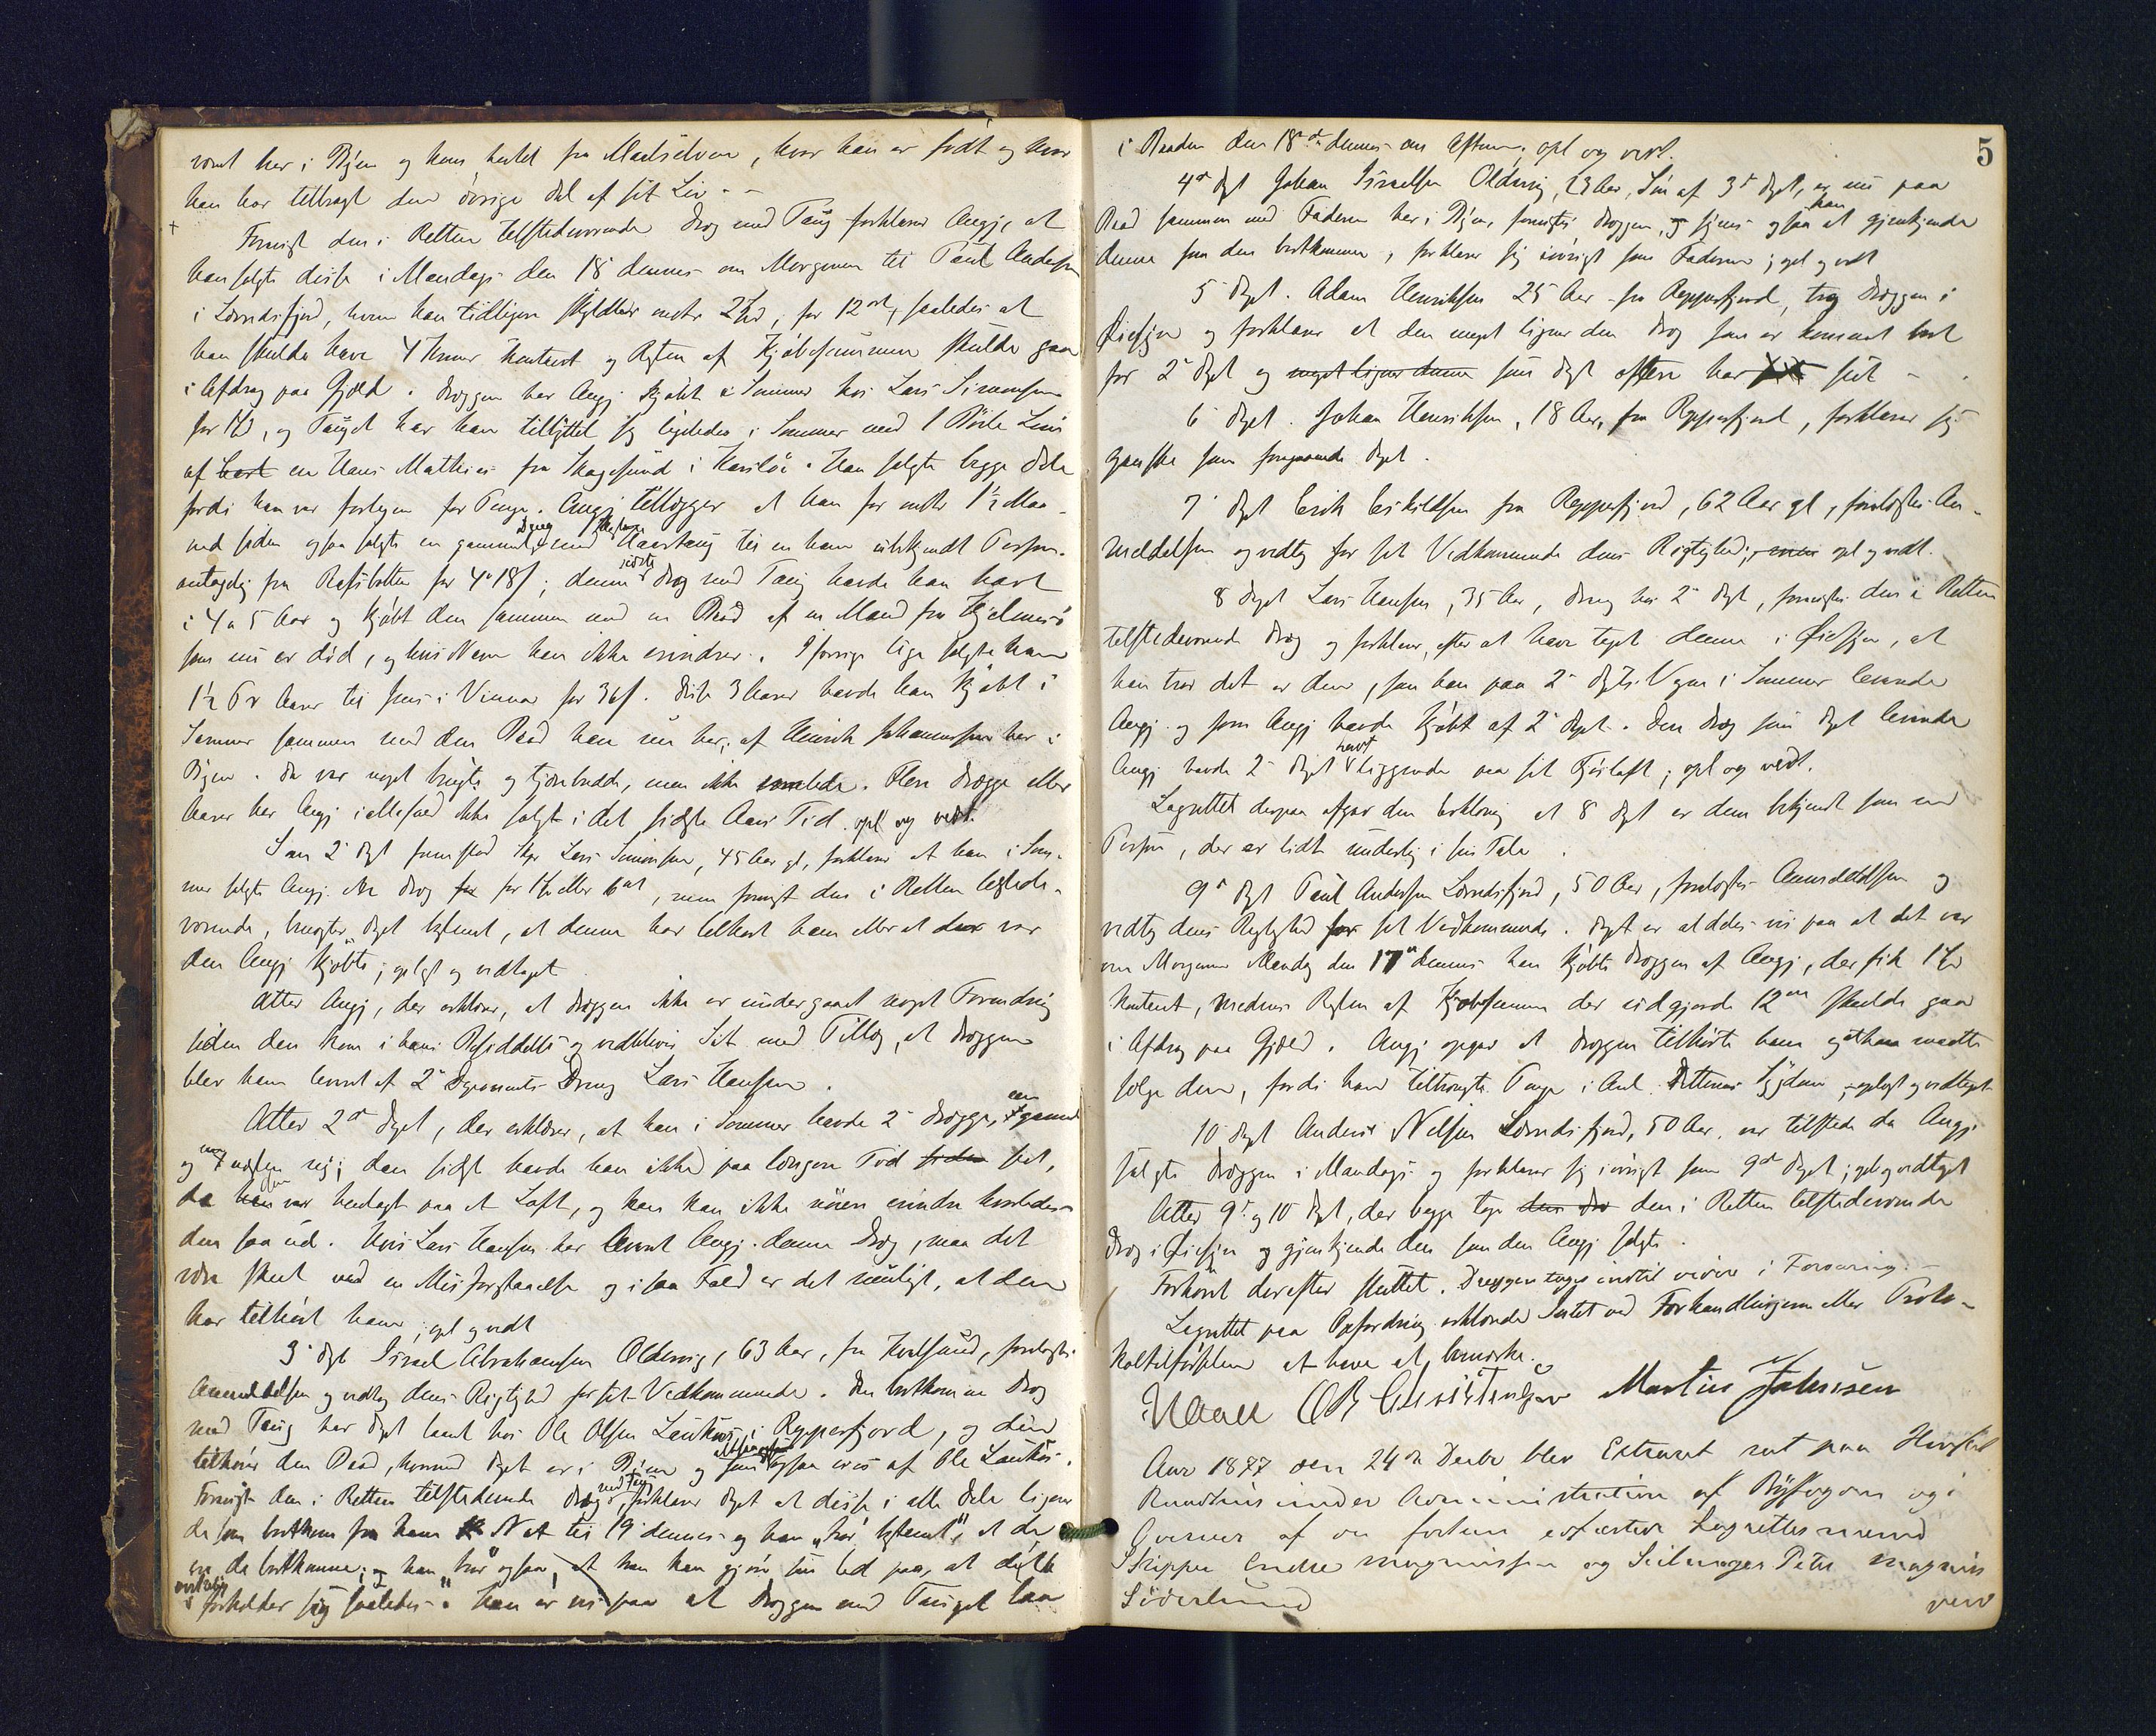 været her i Byen og hans  fra Maalselven, hvor han er født og hvor
han har tilbragt den øvrige Del af sit Liv. -
Forevist den i Retten tilstedeværende Dræg med Taug forklarer Angj, at
han solgte disse i Mandags den 18 dennes om Morgenen til Paul Andersen
i Lærredsfjord, hvem han tidligere skyldte  2 , for 12 ort, saaledes at
han skulde have 4 Kroner kontant og Resten af Kjøbesummen skulde gaa
i Afdrag paa Gjæld. Dræggen har Angj kjøbt i Sommer hos Lars Simonsen
for 1 , og Tauget har han tilbyttet sig ligeledes i Sommer med 1 Bøile Line
af  en Hans Mathies fra Skagesund i . Han solgte begge Dele
fordi han var forlegen for Penge. Angj tillægger at han for  1½ Maa-
ned siden ogsaa solgte en gammel Dræg med  Haartaug til en ham ubekjendt Person
antagelig fra Rafsbotten for 4 18 ; denne sidste Dræg med Taug havde han havt
i 4 a 5 Aar og kjøbt den sammen med en Baad af en Mand fra Hjelmsø
som nu er død, og hvis Navn han ikke erindrer. I forrige Uge solgte han
1½ Par Aarer til  i  for 36 . Disse 3 Aarer havde han kjøbt i
Sommer sammen med den Baad han nu har, af Henrik Johannessen her i
Byen. De var noget brugte og tjærebredde, men ikke . Flere Drægge eller
Aarer har Angj i alle fald ikke solgt i det sidste Aars Tid. opl og vedt.
Som 2 Dpt fremstod Skpr Lars Simonsen, 45 Aar gl, forklarer at han i Som-
mer solgte Angj. en Dræg for  eller 6 ort, men forevist den i Retten tilstede-
værende, benægter Dpt bestemt, at denne har tilhørt ham eller at den var
den Angj kjøbte; oplæst og vedtaget
Atter Angj, der erklærer, at Dræggen ikke er undergaaet nogen Forandring
siden den kom i hans Besiddelse og vedbliver Sit med Tillæg, at Dræggen
blev ham leveret af 2 Deponents Dreng Lars Hansen.
Atter 2 Dpt, der erklærer, at han i Sommer havde 2 Drægge, en gammel
og en næsten ny; den sidste havde han ikke paa længere Tid  set,
da den var henlagt paa et Loft, og han kan ikke nøiere erindre hvorledes
den saa ud. Hvis Lars Hansen har leveret Angj. denne Dræg, maa det
være skeet ved en Misforstaaelse og i saa Fald er det muligt, at den
har tilhørt ham; opl og vedt
3 Dpt Israel Abrahamsen Oldervig, 63 Aar, fra Kvalsund, forelagdes
Anmeldelsen og vedtog dens Rigtighed for sit Vedkommende. Den bortkomne Dræg
med Taug har Dpt laant hos Ole Olsen  i Repperfjord, og den
tilhører den Baad, hvormed Dpt er i Byen og som ogsaa eies af Ole .
Forevist den i Retten tilstedeværende Dræg med Taug, forklarer Dpt at disse i alle Dele ligner
de som bortkom fra ham Nat til 19 dennes og han "tror bestemt", at de
er de bortkomne; og han "tror" ogsaa, at han kan gjøre sin Ed paa, at dette
virkelig forholder sig saaledes." Han er vis paa at Dræggen med Tauget laa
5
i Baaden den 18de dennes om Aftenen; opl og vedt.
4de Dpt Johan Israelsen Oldervig, 23 Aar, Søn af 3die Dpt, er nu paa
Baad sammen med Faderen her i Byen, forevistes Dræggen, og synes han ogsaa at gjenkjende
denne som den bortkomne, forklarer sig iøvrigt som Faderen; opl og vedt
5 Dpt. Adam Henriksen 25 Aar fra Repperfjord, tog Dræggen i
Øiesyn og forklarer at den meget ligner den Dræg som er kommet bort
for 2 Dpt og meget ligner denne som Dpt oftere har  set -
6 Dpt. Johan Henriksen, 18 Aar, fra Repperfjord, forklarer sig
ganske som foregaaende Dpt.
7 Dpt Erik Eskildsen fra Repperfjord, 62 Aar gl, forelagdes An-
meldelsen og vedtog for sit Vedkommende dens Rigtighed; opl og vedt.
8 Dpt Lars Hansen, 35 Aar, Dreng hos 2 Dpt, forevistes den i Retten
tilstedeværende Dræg og forklarer, efter at have taget denne i Øiesyn, at
han tror det er den, som han paa 2 Dpts Vegne i Sommer leverede
Angj. og som Angj havde kjøbt af 2 Dpt. Den Dræg som Dpt leverede
Angj havde 2 Dpt havt liggende paa sit Fjøsloft; opl og vedt.
Lagrettet derpaa afgav den Erklæring at 8 Dpt er dem bekjendt som en
Person, der er lidt underlig i sin Tale.
9de Dpt Paul Andersen Lærredsfjord, 50 Aar, forelagdes Anmeldelsen og
vedtog dens Rigtighed for sit Vedkommende. Dpt er aldeles vis paa at det var
om Morgenen Mandag den 17de dennes han kjøbte Dræggen af Angj, der fik 1
kontant, medens Resten af Kjøbesummen der udgjorde 12 ort skulde gaa
i Afdrag paa Gjæld. Angj opgav at Dræggen tilhørte ham og at han maatte
sælge den, fordi han tiltrængte Penge i Anl. Datterens Sygdom; oplæst og vedtaget
10 Dpt Anders Nilsen Lærredsfjord, 50 Aar, var tilstede da Angj.
solgte Dræggen i Mandags og forklarer sig iøvrigt som 9de Dpt; opl og vedtaget
Atter 9de og 10 Dpt, der begge tage den  den i Retten tilstedeværende
Dræg i Øiesyn og gjenkjende den som den Angj solgte.
Forhøret derefter sluttet. Dræggen toges indtil videre i Forvaring. -
Lagrettet paa Opfordring erklærede Intet ved Forhandlingerne eller Proto-
koltilførselen at have at bemærke.
 OB Christensen Martin Johnsen
Aar 1877 den 24de Decbr blev Extraret sat paa Hammerfest
Raadhus under Administration af Byfogden og i
Overvær af de forhen edfæstede Lagrettesmænd
Skipper Endre Magnussen og Seilmager Peter Magnus
Söderlund
ved